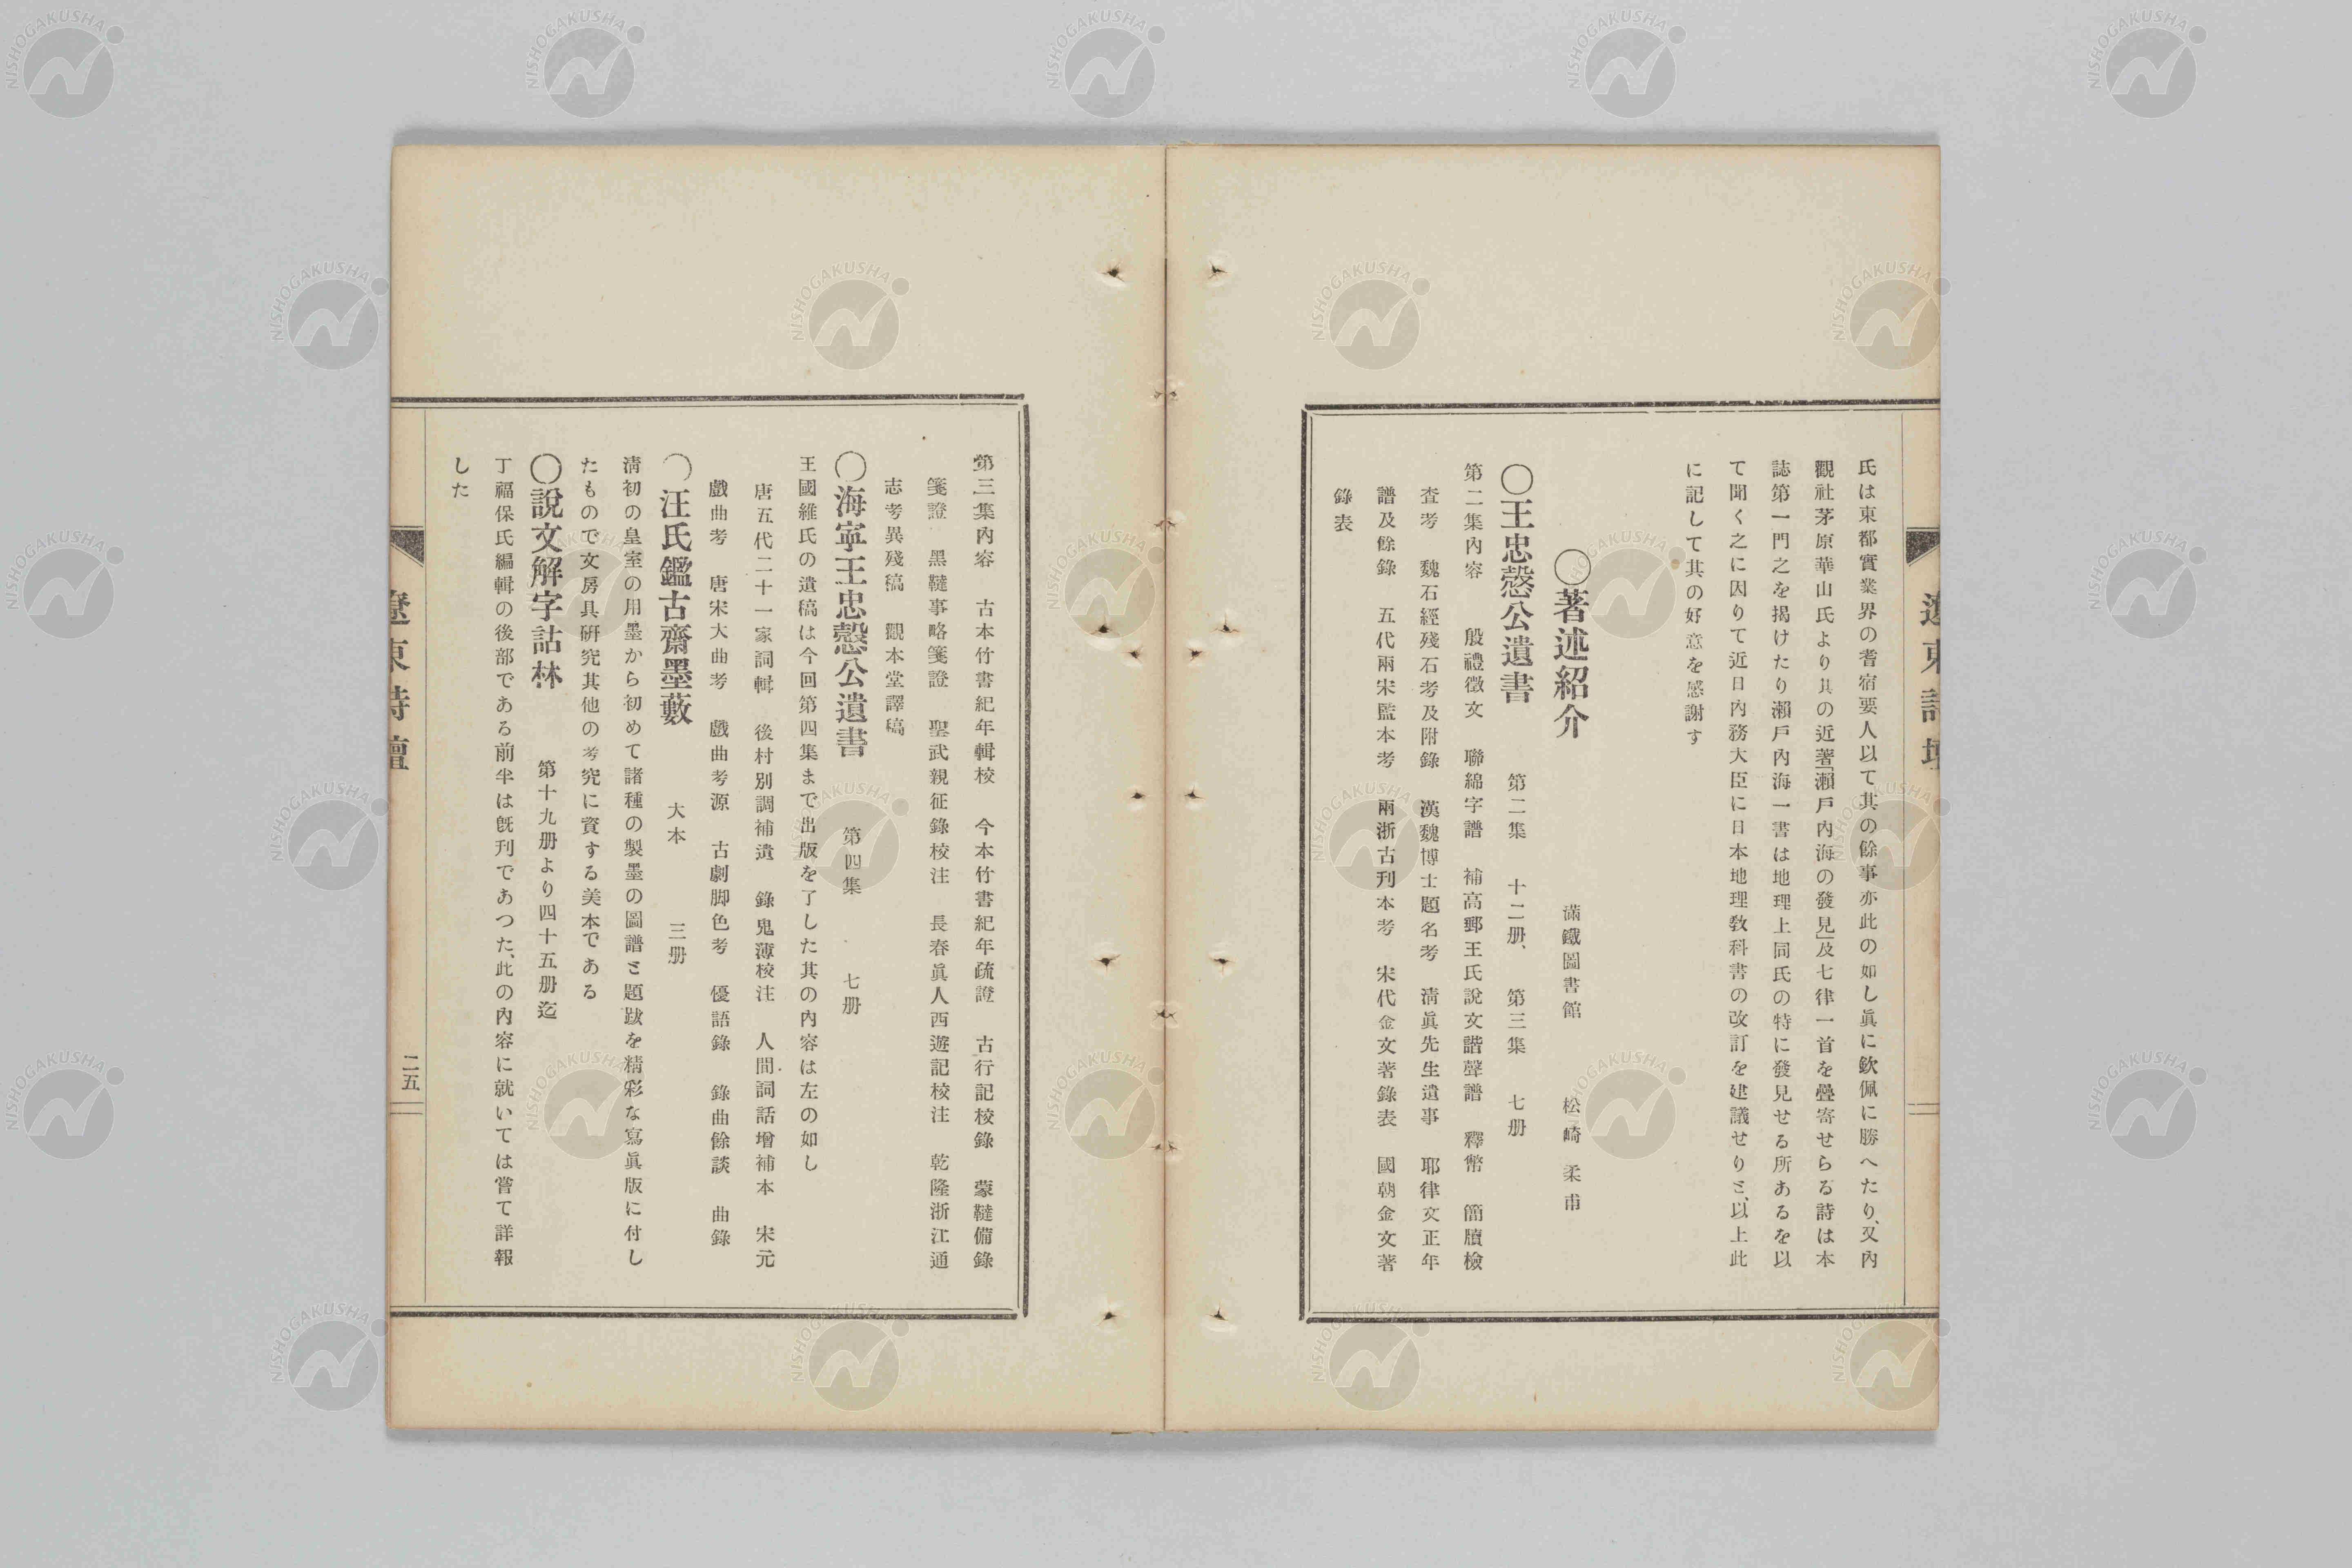 氏は東都實業界の耆宿要人以て其の餘事亦此の如し眞に欽佩に勝へたり、又內
觀社茅原華山氏より其の近著「瀨戶內海の發見」及七律一首を疊寄せらる詩は本
誌第一門之を揭けたり瀨戶內海一書は地理上同氏の特に發見せる所あるを以
て聞く之に因りて近日內務大臣に日本地理敎科書の改訂を建議せりと、以上此
に記して其の好意を感謝す
〇著述紹介　滿鐵圖書館　松崎柔甫
〇王忠慤公遺書　第二集　十二册、　第三集　七册
第二集內容　殷禮徵文　聯綿字譜　補高郵王氏說文諧聲譜　釋幣　簡牘檢
査考　魏石經殘石考及附錄　漢魏博士題名考　淸眞先生遺事　耶律文正年
譜及餘錄　五代兩宋監本考　兩浙古刊本考　宋代金文著錄表　國朝金文著
錄表
第三集內容　古本竹書紀年輯校　今本竹書紀年疏證　古行記校錄　蒙韃備錄
箋證　黑韃事略箋證　聖武親征錄校注　長春眞人西遊記校注　乾隆浙江通
志考異殘稿　觀本堂譯稿
〇海寧王忠慤公遺書　第四集　七册
王國維氏の遺稿は今回第四集まで出版を了した其の內容は左の如し
唐五代二十一家詞輯　後村別調補遺　錄鬼薄校注　人間詞話增補本　宋元
戲曲考　唐宋大曲考　戲曲考源　古劇脚色考　優語錄　錄曲餘談　曲錄
〇汪氏鑑古齋墨藪　大本　三册
淸初の皇室の用墨から初めて諸種の製墨の圖譜と題跋を精彩な寫眞版に付し
たもので文房具硏究其他の考究に資する美本である
〇說文解字詁林　第十九册より四十五册迄
丁福保氏編輯の後部である前半は旣刊であつた、此の內容に就いては嘗て詳報
した
遼東詩壇
二五
NISHOGAKUSHA